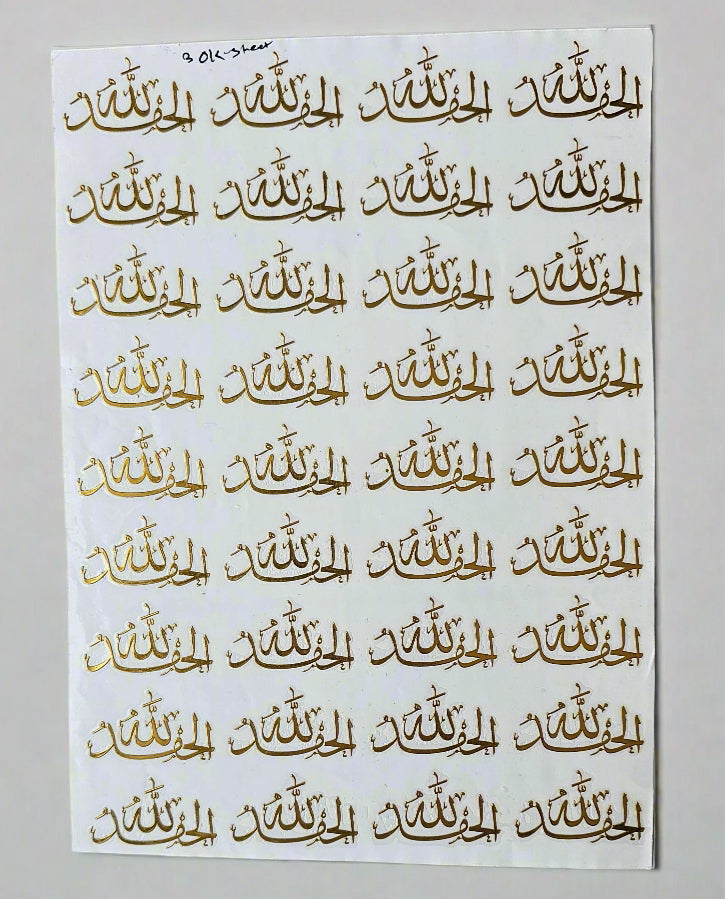 3 Ok-sheet
الحمد لله الحمد لله الحمد لله الحمد لله
الحمد لله الحمد لله الحمد لله الحمد لله
الحمد لله الحمد لله الحمد لله الحمد لله
الحمد لله الحمد لله الحمد لله الحمد لله
الحمد لله الحمد لله الحمد لله الحمد لله
الحمد لله الحمد لله الحمد لله الحمد لله
الحمد لله الحمد لله الحمد لله الحمد لله
الحمد لله الحمد لله الحمد لله الحمد لله
الحمد لله الحمد لله الحمد لله الحمد لله